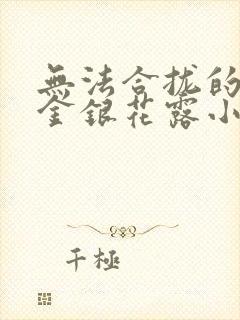 無法合拢的
金銀花露小
千極